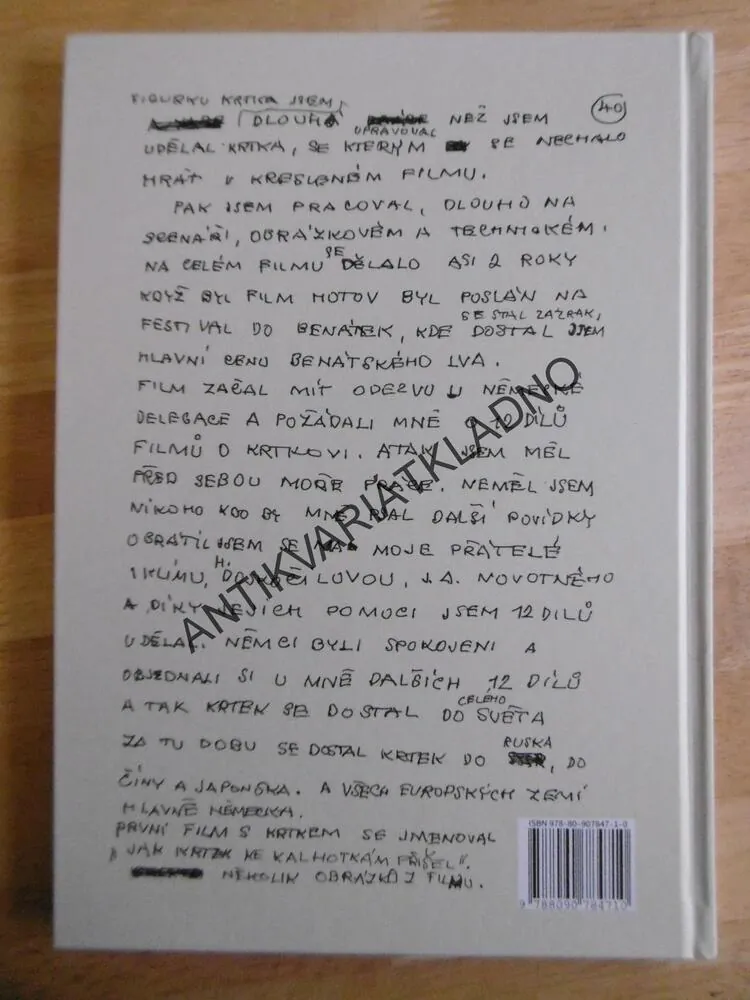 FIGURKU KRTKA JSEM
DLOUHÁ NEŽ JSEM
40
UPRAVOVAL
UDĚLAL KRTKA, SE KTERÝM SE NECHALO
HRÁT V KRESLENÉM FILMU.
PAK JSEM PRACOVAL, DLOUHO NA
SCENÁŘI, OBRÁZKOVÉM A TECHNICKÉM.
NA CELÉM FILMU SE DĚLALO ASI 2 ROKY
KDYŽ BYL FILM HOTOV BYL POSLÁN NA
SE STAL ZÁZRAK,
FESTIVAL DO BENÁTEK, KDE DOSTAL JSEM
HLAVNÍ CENU BENÁTSKÉHO LVA.
FILM ZAČAL MÍT ODEZVU U NĚMECKÉ
DELEGACE A POŽÁDALI MNĚ O 12 DÍLŮ
FILMŮ O KRTKOVI. A TAK JSEM MĚL
PŘED SEBOU MOŘE PRÁCE. NEMĚL JSEM
NIKOHO KDO BY MNĚ PSAL DALŠÍ POVÍDKY
OBRÁTIL JSEM SE NA MOJE PŘÁTELÉ
I KLÍMU, H. DOSKOČILOVOU, J.A. NOVOTNÉHO
A DÍKY JEJICH POMOCI JSEM 12 DÍLŮ
UDĚLAL. NĚMCI BYLI SPOKOJENI A
OBJEDNALI SI U MNĚ DALŠÍCH 12 DÍLŮ
A TAK KRTEK SE DOSTAL DO CELÉHO SVĚTA
ZA TU DOBU SE DOSTAL KRTEK DO RUSKA, DO
ČÍNY A JAPONSKA. A VŠECH EUROPSKÝCH ZEMÍ
HLAVNĚ NĚMECKA.
PRVNÍ FILM S KRTKEM SE JMENOVAL
„JAK KRTEK KE KALHOTKÁM PŘIŠEL".
NĚKOLIK OBRÁZKŮ Z FILMU.
ISBN 978-80-907847-1-0
9 788090 784710
ANTIKVARIÁTKLADNO